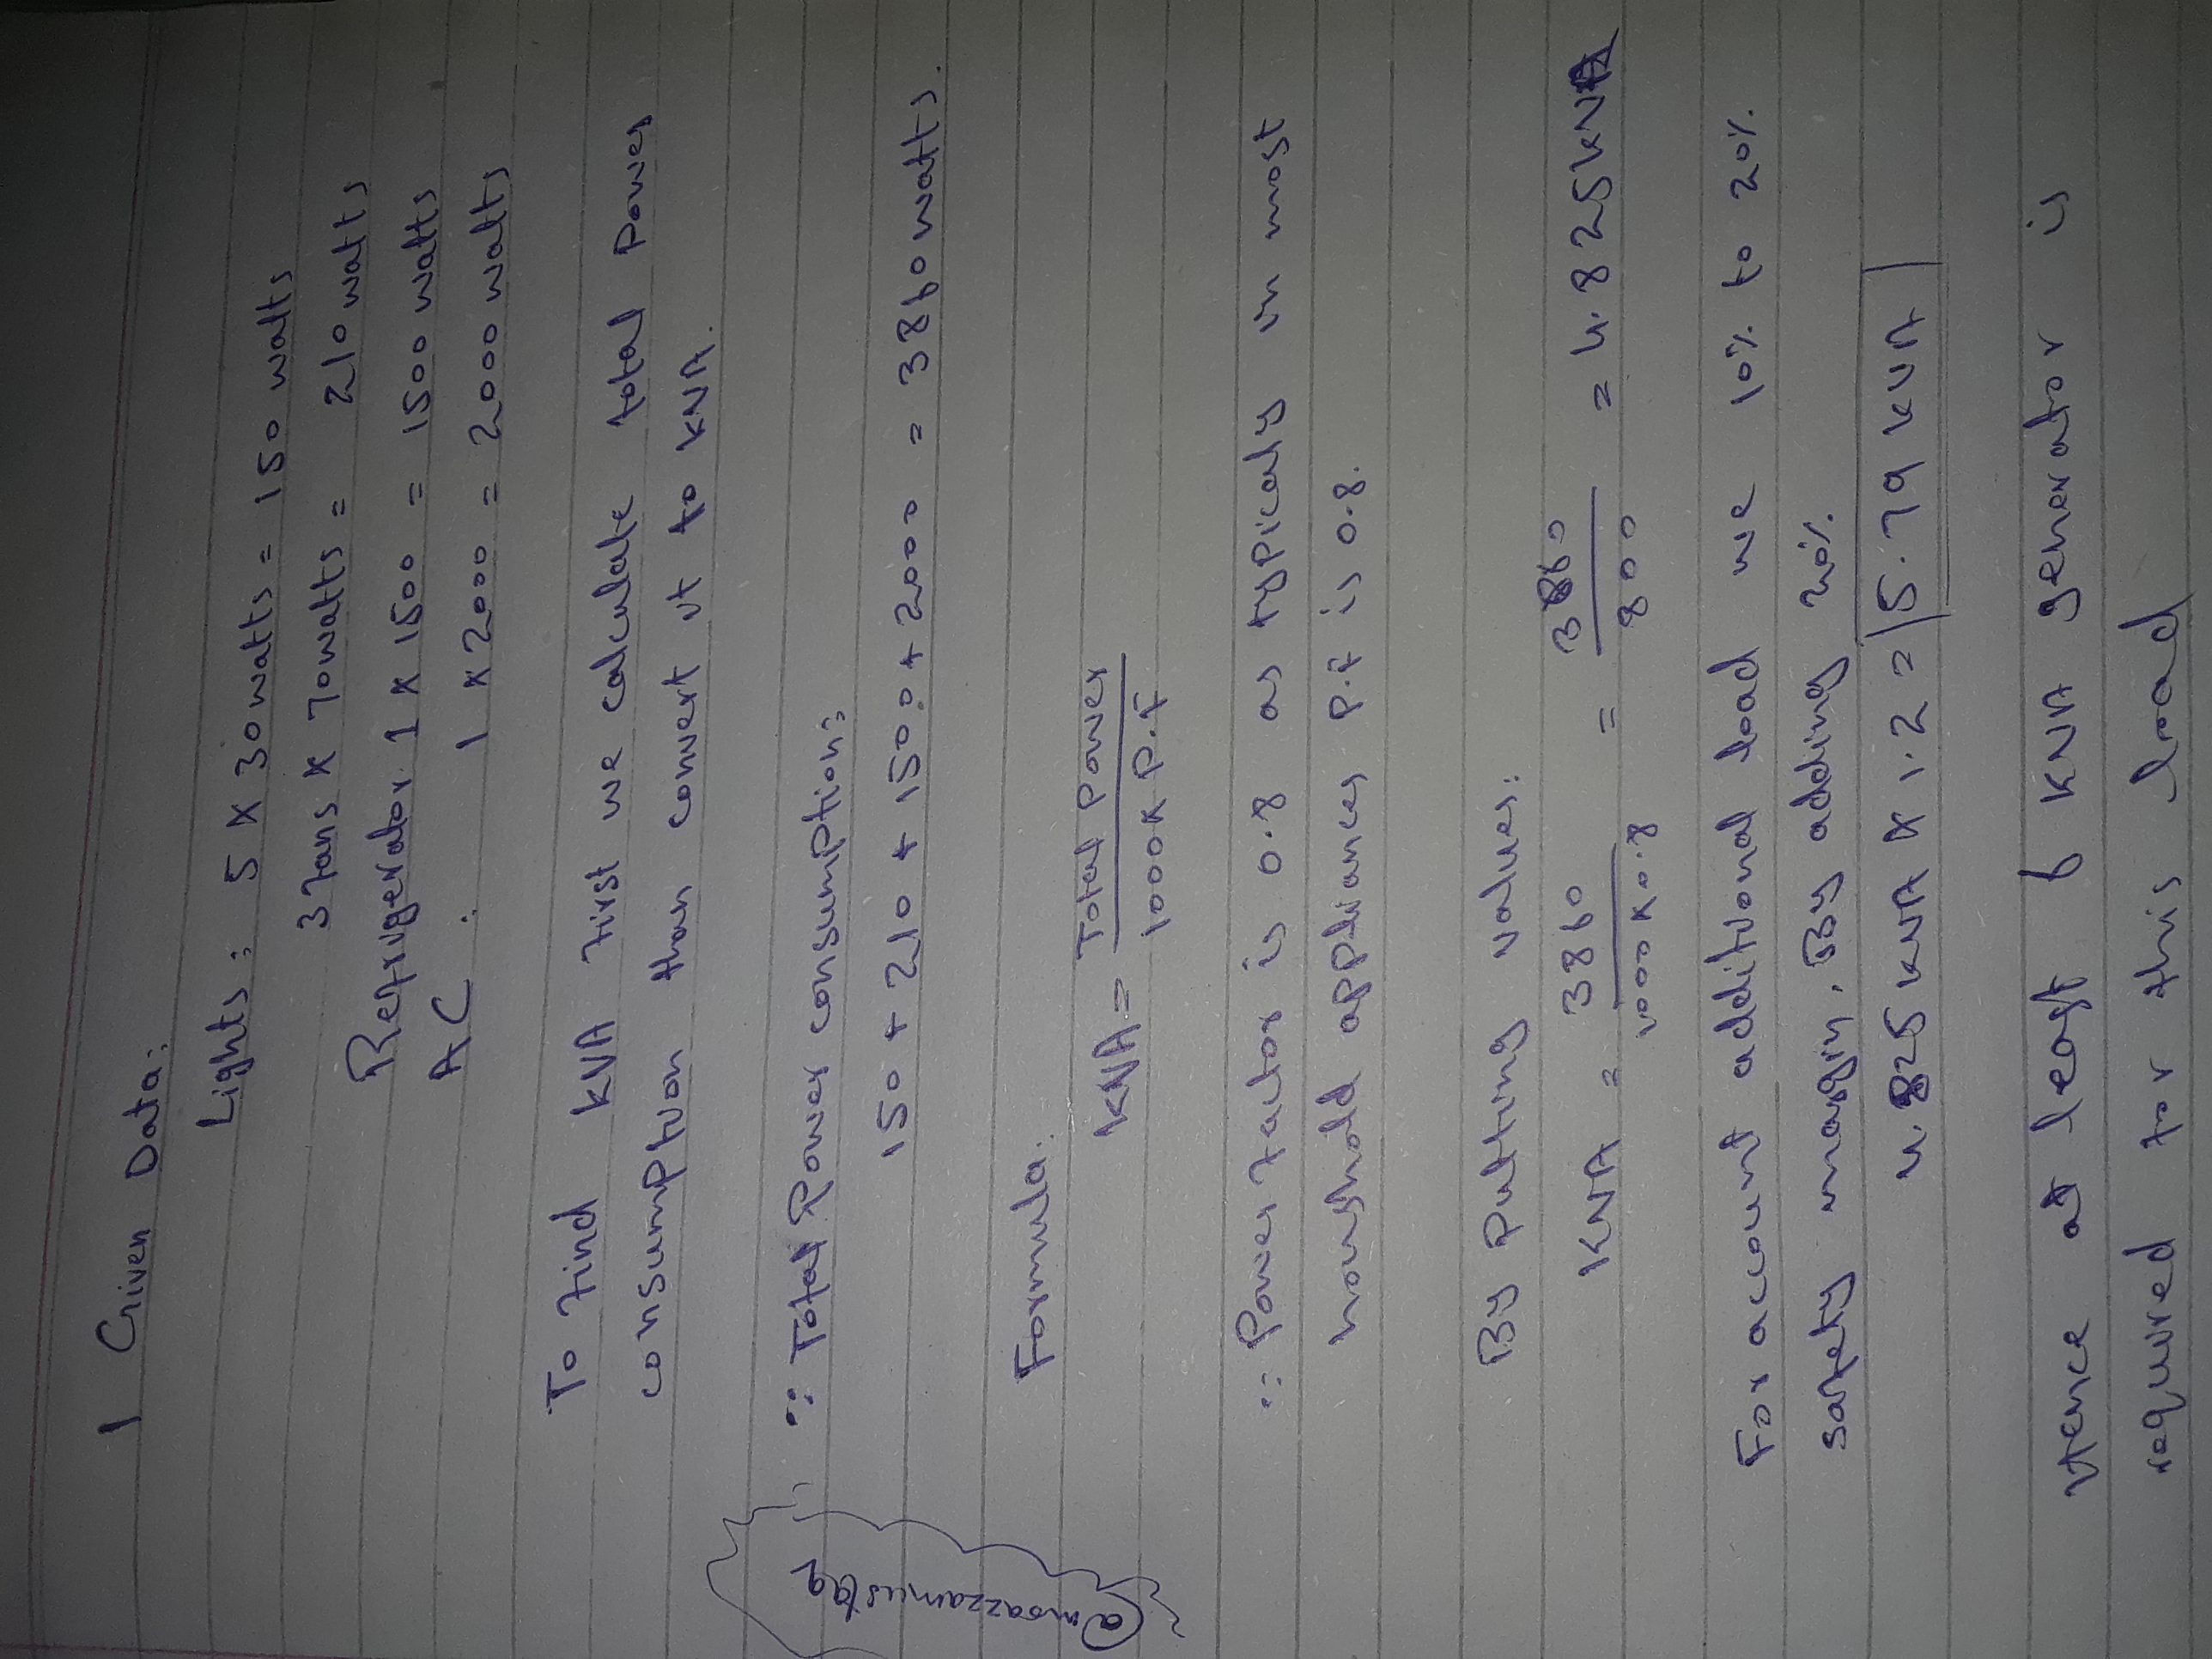 1 Given Data:
Lights: 5 x 30 watts = 150 watts
3 Fans x 70 watts = 210 watts
Refrigerator 1 x 1500 = 1500 watts
AC : 1 x 2000 = 2000 watts
To find kVA first we calculate total power
consumption than convert it to kVA.
∵ Total Power consumption:
150 + 210 + 1500 + 2000 = 3860 watts.
Formula:
kVA = Total power / 1000 x P.F
∵ Power factor is 0.8 as typically in most
household appliances P.F is 0.8.
By Putting values:
KVA = 3860 / 1000 x 0.8 = 3860 / 800 = 4.825 kVA
For account additional load we 10% to 20%
safety margin, By adding 20%
4.825 kVA x 1.2 = 5.79 kVA
Hence at least 6 KVA generator is
required for this load
@moazzamustaq